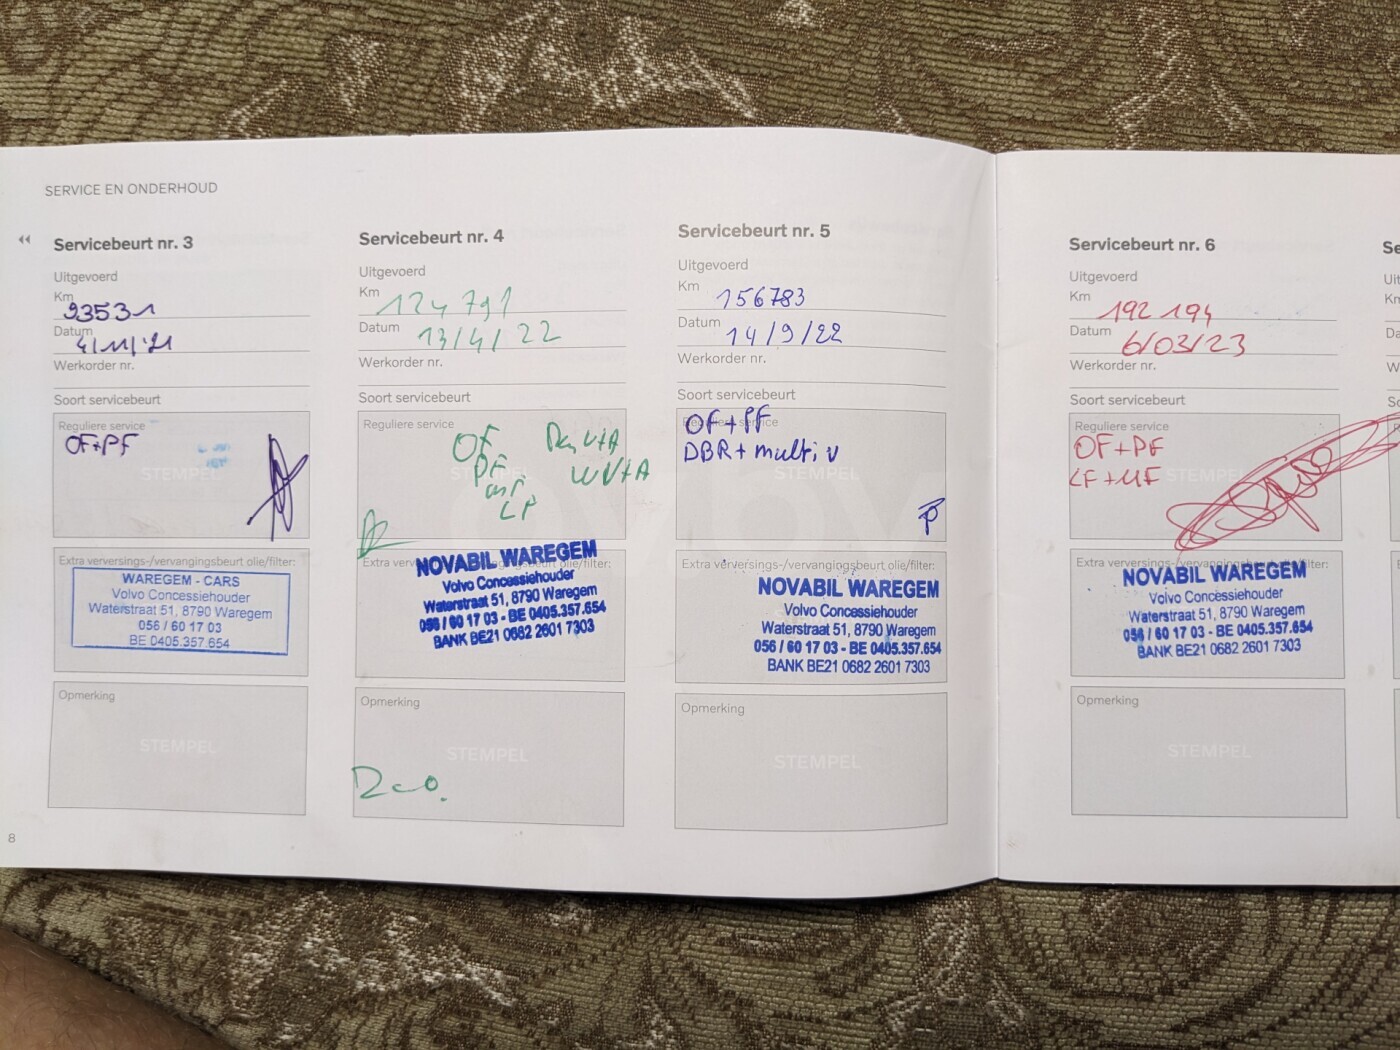 SERVICE EN ONDERHOUD
Servicebeurt nr. 3
Uitgevoerd
Km 93531
Datum 4/11/'21
Werkorder nr.
Soort servicebeurt
Reguliere service
OF+PF
STEMPEL
Extra verversings-/vervangingsbeurt olie/filter:
WAREGEM - CARS
Volvo Concessiehouder
Waterstraat 51, 8790 Waregem
056 / 60 17 03
BE 0405.357.654
Opmerking
STEMPEL
8
Servicebeurt nr. 4
Uitgevoerd
Km 124 791
Datum 13/4/22
Werkorder nr.
Soort servicebeurt
Reguliere service
OF
PF
LF
WV+A
Extra olie/filter:
NOVABIL WAREGEM
Volvo Concessiehouder
Waterstraat 51, 8790 Waregem
056 / 60 17 03 - BE 0405.357.654
BANK BE21 0682 2601 7303
Opmerking
STEMPEL
Servicebeurt nr. 5
Uitgevoerd
Km 156783
Datum 14/9/22
Werkorder nr.
Soort servicebeurt
Reguliere service
OF+PF
DBR+multi v
STEMPEL
Extra verversings-/vervangingsbeurt olie/filter:
NOVABIL WAREGEM
Volvo Concessiehouder
Waterstraat 51, 8790 Waregem
056 / 60 17 03 - BE 0405.357.654
BANK BE21 0682 2601 7303
Opmerking
STEMPEL
Servicebeurt nr. 6
Uitgevoerd
Km 192 194
Datum 6/03/23
Werkorder nr.
Soort servicebeurt
Reguliere service
OF+PF
LF+MF
STEMPEL
Extra verversings-/vervangingsbeurt olie/filter:
NOVABIL WAREGEM
Volvo Concessiehouder
Waterstraat 51, 8790 Waregem
056 / 60 17 03 - BE 0405.357.654
BANK BE21 0682 2601 7303
Opmerking
STEMPEL